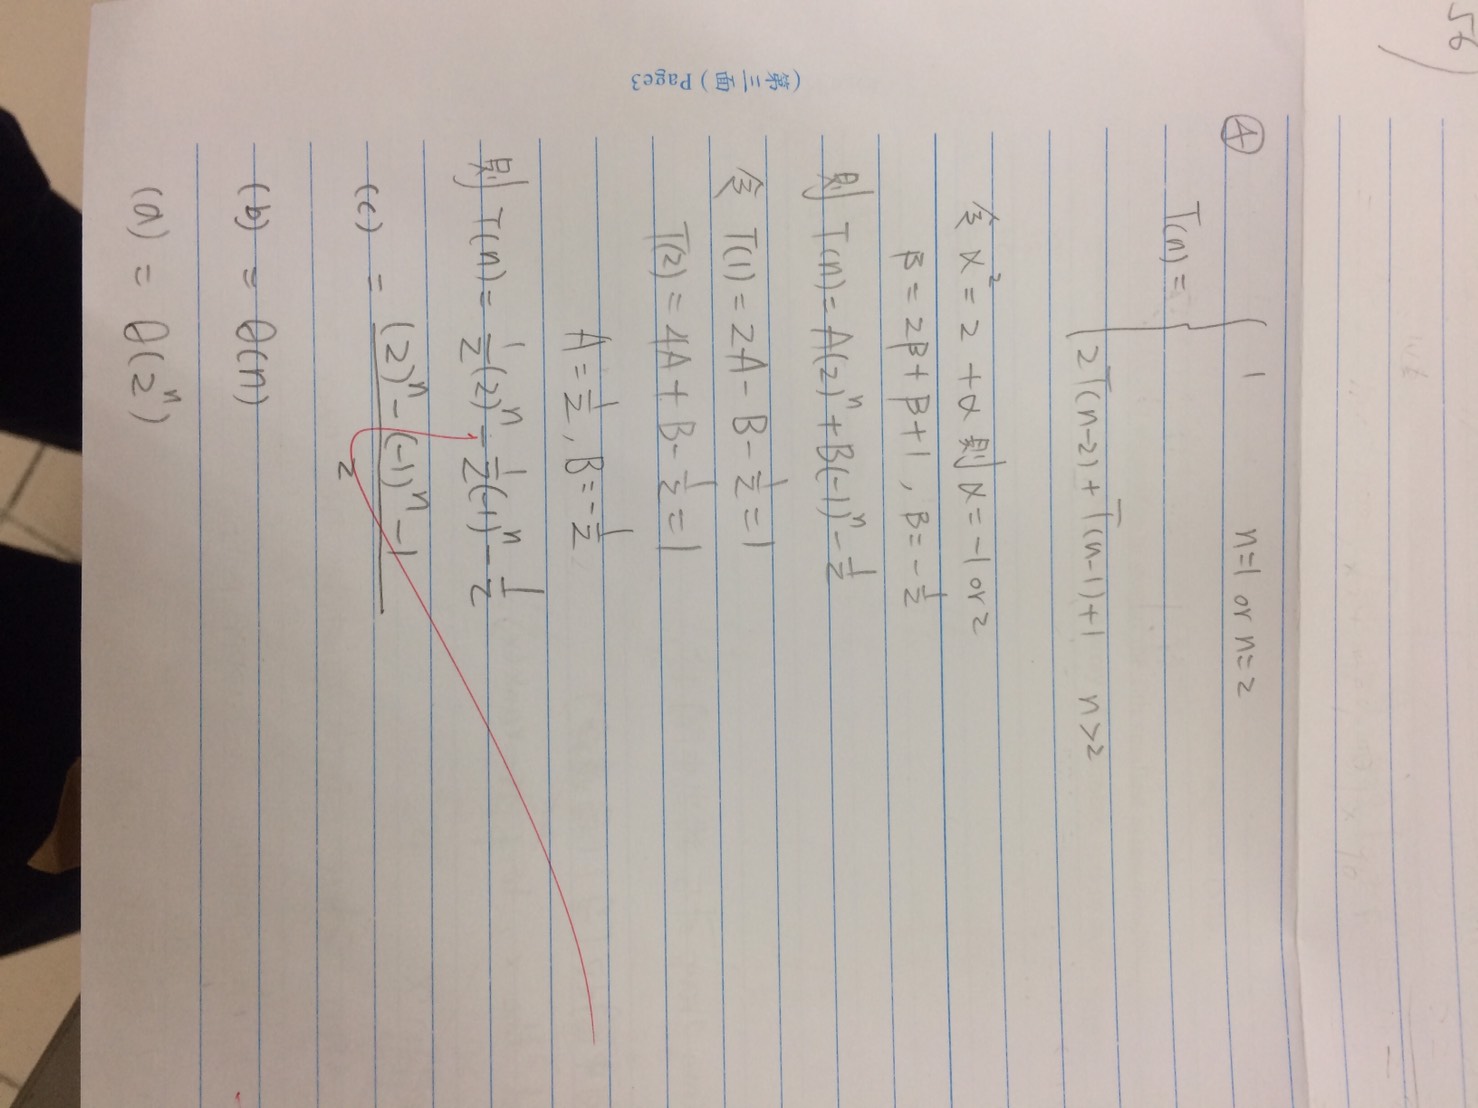 56
④
1 n=1 or n=2
T(n) =
2T(n-2) + T(n-1)+1 n>2
令 α² = 2 + α 則 α = -1 or 2
β = 2β + β + 1 , β = -1/2
則 T(n) = A(2)ⁿ + B(-1)ⁿ - 1/2
令 T(1) = 2A - B - 1/2 = 1
T(2) = 4A + B - 1/2 = 1
A = 1/2 , B = -1/2
則 T(n) = 1/2(2)ⁿ - 1/2(-1)ⁿ - 1/2
(c) = ((2)ⁿ - (-1)ⁿ - 1)/2
(b) = θ(n)
(a) = θ(2ⁿ)
(第三面) Page3